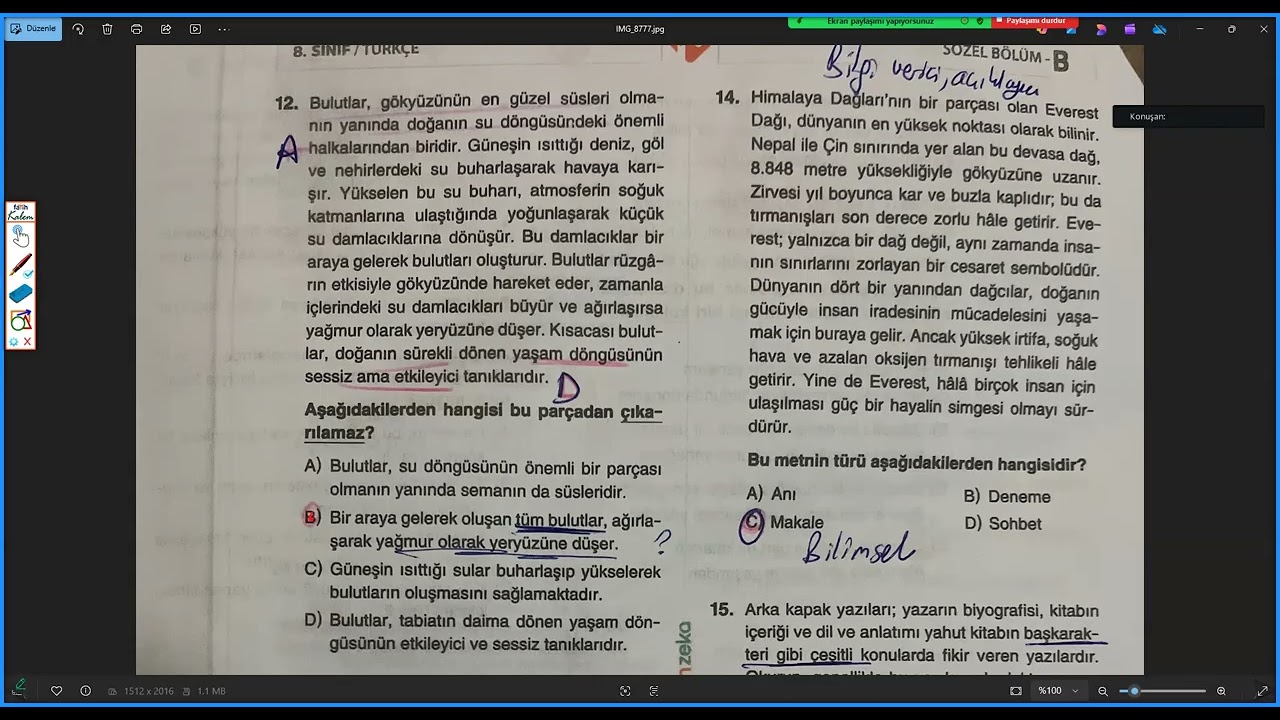 Düzenle
IMG_8777.jpg
Ekran paylaşımı yapıyorsunuz
Paylaşımı durdur
Konuşan:
fatih
Kalem
8. SINIF / TÜRKÇE
12. Bulutlar, gökyüzünün en güzel süsleri olma-
nın yanında doğanın su döngüsündeki önemli
halkalarından biridir. Güneşin ısıttığı deniz, göl
A
ve nehirlerdeki su buharlaşarak havaya karı-
şır. Yükselen bu su buharı, atmosferin soğuk
katmanlarına ulaştığında yoğunlaşarak küçük
su damlacıklarına dönüşür. Bu damlacıklar bir
araya gelerek bulutları oluşturur. Bulutlar rüzgâ-
rın etkisiyle gökyüzünde hareket eder, zamanla
içlerindeki su damlacıkları büyür ve ağırlaşırsa
yağmur olarak yeryüzüne düşer. Kısacası bulut-
lar, doğanın sürekli dönen yaşam döngüsünün
sessiz ama etkileyici tanıklarıdır.
D
Aşağıdakilerden hangisi bu parçadan çıka-
rılamaz?
A) Bulutlar, su döngüsünün önemli bir parçası
olmanın yanında semanın da süsleridir.
B) Bir araya gelerek oluşan tüm bulutlar, ağırla-
şarak yağmur olarak yeryüzüne düşer.
?
C) Güneşin ısıttığı sular buharlaşıp yükselerek
bulutların oluşmasını sağlamaktadır.
D) Bulutlar, tabiatın daima dönen yaşam dön-
güsünün etkileyici ve sessiz tanıklarıdır.
SÖZEL BÖLÜM - B
Bilgi verici, açıklayıcı
14. Himalaya Dağları'nın bir parçası olan Everest
Dağı, dünyanın en yüksek noktası olarak bilinir.
Nepal ile Çin sınırında yer alan bu devasa dağ,
8.848 metre yüksekliğiyle gökyüzüne uzanır.
Zirvesi yıl boyunca kar ve buzla kaplıdır; bu da
tırmanışları son derece zorlu hâle getirir. Eve-
rest; yalnızca bir dağ değil, aynı zamanda insa-
nın sınırlarını zorlayan bir cesaret sembolüdür.
Dünyanın dört bir yanından dağcılar, doğanın
gücüyle insan iradesinin mücadelesini yaşa-
mak için buraya gelir. Ancak yüksek irtifa, soğuk
hava ve azalan oksijen tırmanışı tehlikeli hâle
getirir. Yine de Everest, hâlâ birçok insan için
ulaşılması güç bir hayalin simgesi olmayı sür-
dürür.
Bu metnin türü aşağıdakilerden hangisidir?
A) Anı
B) Deneme
C) Makale
D) Sohbet
Bilimsel
15. Arka kapak yazıları; yazarın biyografisi, kitabın
içeriği ve dil ve anlatımı yahut kitabın başkarak-
teri gibi çeşitli konularda fikir veren yazılardır.
nzeka
1512 x 2016
1.1 MB
%100